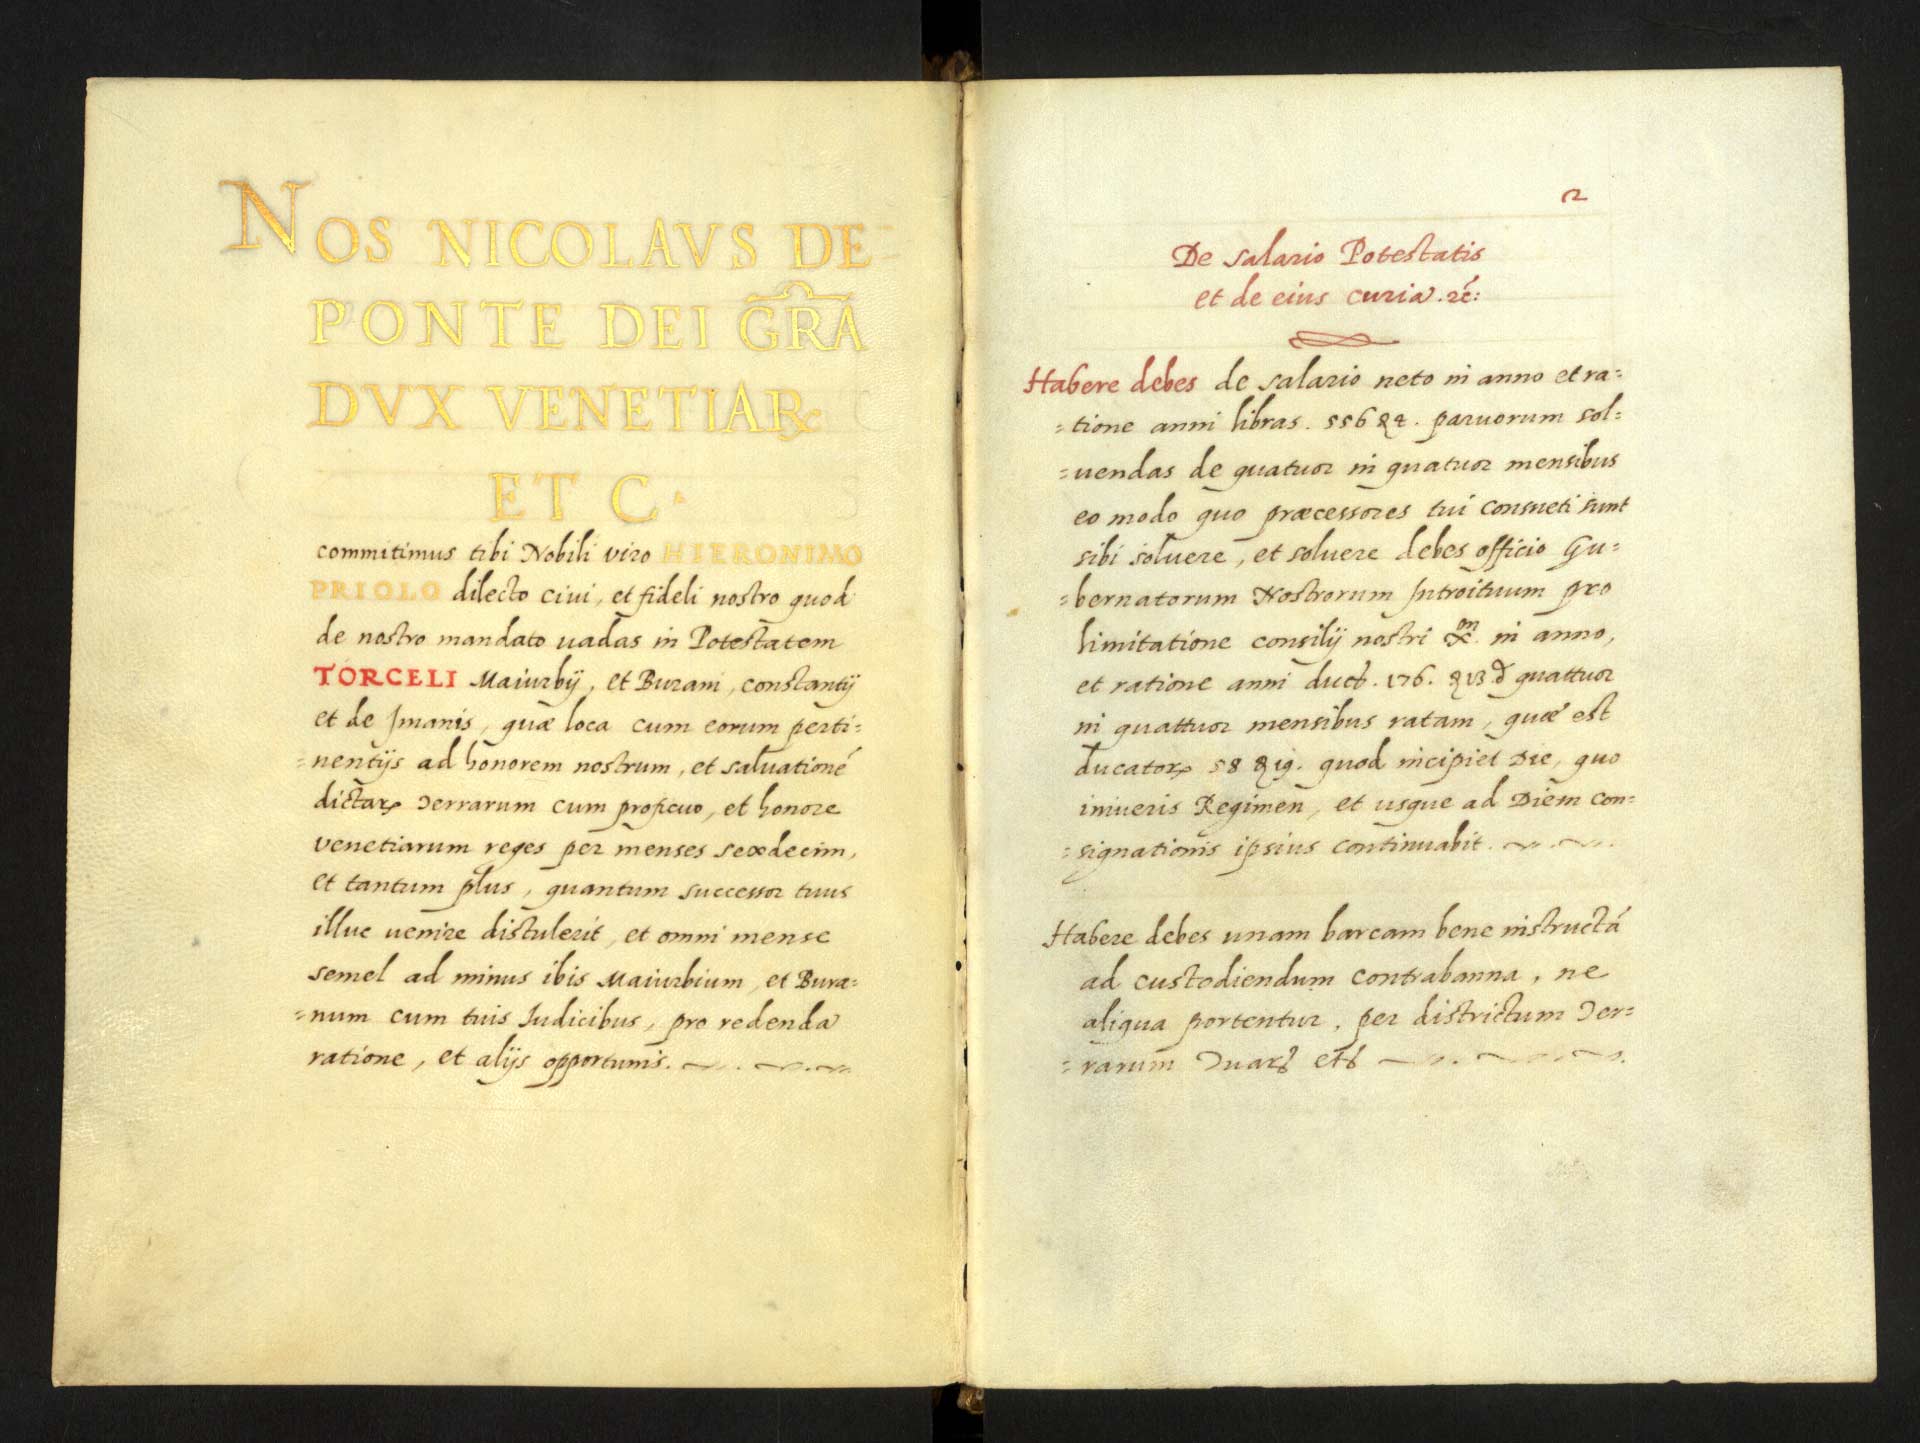 NOS NICOLAVS DE
PONTE DEI GRA
DVX VENETIAR
ET C.
commitimus tibi Nobili viro HIERONIMO
PRIOLO dilecto ciui, et fideli nostro quod
de nostro mandato uadas in Potestatem
TORCELI Maiurbij, et Burani, constantij
et de Imanis, quæ loca cum eorum perti=
=nentijs ad honorem nostrum, et saluationé
dictarꝝ Terrarum cum proficuo, et honore
venetiarum reges per menses sexdecim,
et tantum plus, quantum successor tuus
illuc uenire distulerit, et omni mense
semel ad minus ibis Maiurbium, et Bura=
=num cum tuis Iudicibus, pro redenda
ratione, et alijs opportunis.
2
De salario Potestatis
et de eius curia
Habere debes de salario neto in anno et ra=
=tione anni libras. 556 ꝸ 4. paruorum sol=
=uendas de quatuor in quatuor mensibus
eo modo quo præcessores tui consueti sunt
sibi soluere, et soluere debes officio Gu=
=bernatorum Nostrorum Introituum pro
limitatione consilij nostri in anno,
et ratione anni duct. 176. quattuor
in quattuor mensibus ratam, quæ est
ducatorꝝ 58 ꝸ 19. quod incipiet Die, quo
iniueris Regimen, et usque ad Diem con=
=signationis ipsius continuabit.
Habere debes unam barcam bene instructá
ad custodiendum contrabanna, ne
aliqua portentur, per districtum Ter=
=rarum